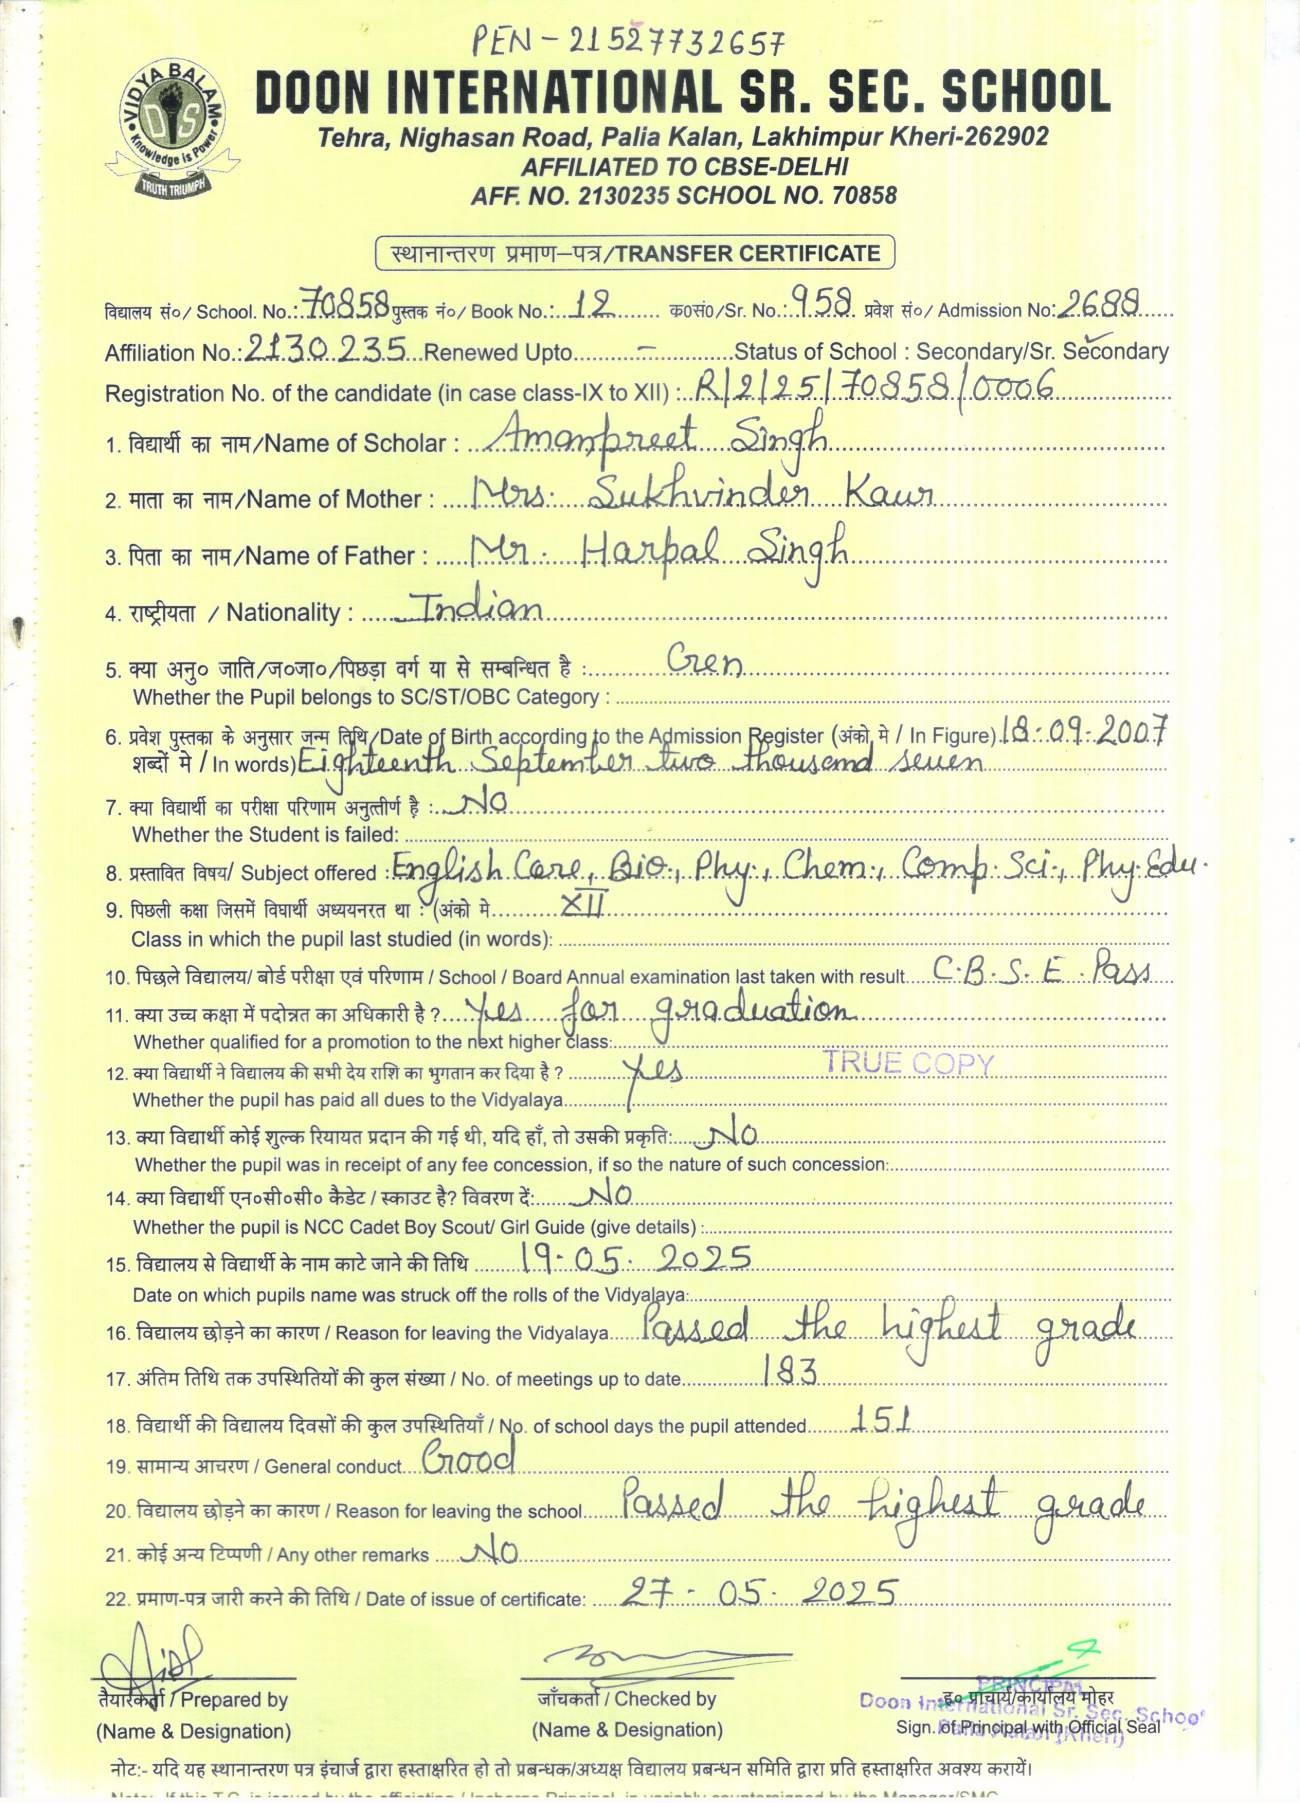 PEN - 21527732657
VIDYA BALAM
DIS
Knowledge is Power
TRUTH TRIUMPH
DOON INTERNATIONAL SR. SEC. SCHOOL
Tehra, Nighasan Road, Palia Kalan, Lakhimpur Kheri-262902
AFFILIATED TO CBSE-DELHI
AFF. NO. 2130235 SCHOOL NO. 70858
स्थानान्तरण प्रमाण–पत्र/TRANSFER CERTIFICATE
विद्यालय सं०/ School. No.: 70858 पुस्तक नं०/ Book No.: 12 क0सं0/Sr. No.: 958 प्रवेश सं०/ Admission No: 2688
Affiliation No.: 2130235 Renewed Upto - Status of School : Secondary/Sr. Secondary
Registration No. of the candidate (in case class-IX to XII) : R/2/25/70858/0006
1. विद्यार्थी का नाम/Name of Scholar : Amanpreet Singh
2. माता का नाम/Name of Mother : Mrs. Sukhvinder Kaur
3. पिता का नाम/Name of Father : Mr. Harpal Singh
4. राष्ट्रीयता / Nationality : Indian
5. क्या अनु० जाति/ज०जा०/पिछड़ा वर्ग या से सम्बन्धित है : Gen
Whether the Pupil belongs to SC/ST/OBC Category :
6. प्रवेश पुस्तका के अनुसार जन्म तिथि/Date of Birth according to the Admission Register (अंको मे / In Figure) 18-09-2007
शब्दों मे / In words) Eighteenth September two thousand seven
7. क्या विद्यार्थी का परीक्षा परिणाम अनुत्तीर्ण है : No
Whether the Student is failed:
8. प्रस्तावित विषय/ Subject offered : English Core, Bio., Phy., Chem., Comp. Sci., Phy. Edu.
9. पिछली कक्षा जिसमें विघार्थी अध्ययनरत था : (अंको मे XII
Class in which the pupil last studied (in words):
10. पिछले विद्यालय/ बोर्ड परीक्षा एवं परिणाम / School / Board Annual examination last taken with result C.B.S.E. Pass
11. क्या उच्च कक्षा में पदोन्नत का अधिकारी है ? Yes for graduation
Whether qualified for a promotion to the next higher class:
TRUE COPY
12. क्या विद्यार्थी ने विद्यालय की सभी देय राशि का भुगतान कर दिया है ? Yes
Whether the pupil has paid all dues to the Vidyalaya
13. क्या विद्यार्थी कोई शुल्क रियायत प्रदान की गई थी, यदि हाँ, तो उसकी प्रकृति: No
Whether the pupil was in receipt of any fee concession, if so the nature of such concession:
14. क्या विद्यार्थी एन०सी०सी० कैडेट / स्काउट है? विवरण दें: No
Whether the pupil is NCC Cadet Boy Scout/ Girl Guide (give details) :
15. विद्यालय से विद्यार्थी के नाम काटे जाने की तिथि 19-05-2025
Date on which pupils name was struck off the rolls of the Vidyalaya:
16. विद्यालय छोड़ने का कारण / Reason for leaving the Vidyalaya Passed the highest grade
17. अंतिम तिथि तक उपस्थितियों की कुल संख्या / No. of meetings up to date 183
18. विद्यार्थी की विद्यालय दिवसों की कुल उपस्थितियाँ / No. of school days the pupil attended 151
19. सामान्य आचरण / General conduct Good
20. विद्यालय छोड़ने का कारण / Reason for leaving the school Passed the highest grade
21. कोई अन्य टिप्पणी / Any other remarks No
22. प्रमाण-पत्र जारी करने की तिथि / Date of issue of certificate: 27-05-2025
तैयारकर्ता / Prepared by
(Name & Designation)
जाँचकर्ता / Checked by
(Name & Designation)
PRINCIPAL
ह० प्राचार्य/कार्यालय मोहर
Doon International Sr. Sec. School
Sign. of Principal with Official Seal
Palia Kalan (Kheri)
नोट:- यदि यह स्थानान्तरण पत्र इंचार्ज द्वारा हस्ताक्षरित हो तो प्रबन्धक/अध्यक्ष विद्यालय प्रबन्धन समिति द्वारा प्रति हस्ताक्षरित अवश्य करायें।